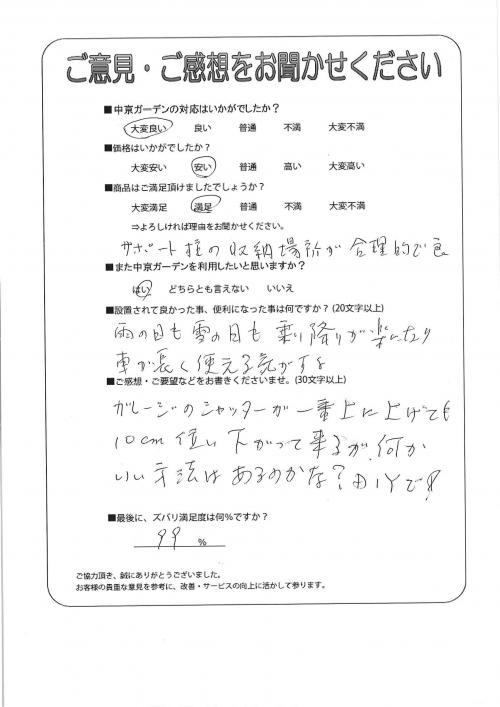 ご意見・ご感想をお聞かせください
■中京ガーデンの対応はいかがでしたか？
大変良い 良い 普通 不満 大変不満
■価格はいかがでしたか？
大変安い 安い 普通 高い 大変高い
■商品はご満足頂けましたでしょうか？
大変満足 満足 普通 不満 大変不満
⇒よろしければ理由をお聞かせください。
サポート柱の収納場所が合理的で良
■また中京ガーデンを利用したいと思いますか？
はい どちらとも言えない いいえ
■設置されて良かった事、便利になった事は何ですか？(20文字以上)
雨の日も雪の日も乗り降りが楽になり
車が長く使える気がする
■ご感想・ご要望などをお書きくださいませ。(30文字以上)
ガレージのシャッターが一番上に上げても
10cm位い下がって来るが、何か
いい方法はあるのかな？DIYで
■最後に、ズバリ満足度は何%ですか？
99 %
ご協力頂き、誠にありがとうございました。
お客様の貴重な意見を参考に、改善・サービスの向上に活かして参ります。